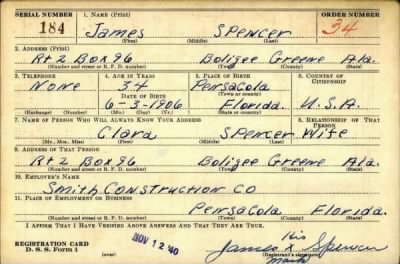 SERIAL NUMBER 1. NAME (Print) ORDER NUMBER
184 James Spencer 34
(First) (Middle) (Last)
2. ADDRESS (Print)
Rt 2 Box 96 Boligee Greene Ala.
(Number and street or R. F. D. number) (Town) (County) (State)
3. TELEPHONE 4. AGE IN YEARS 5. PLACE OF BIRTH 6. COUNTRY OF CITIZENSHIP
None 34 Pensacola
DATE OF BIRTH (Town or county)
6-3-1906 Florida. U.S.A.
(Exchange) (Number) (Mo.) (Day) (Yr.) (State or country)
7. NAME OF PERSON WHO WILL ALWAYS KNOW YOUR ADDRESS 8. RELATIONSHIP OF THAT PERSON
Clara Spencer Wife
(Mr., Mrs., Miss) (First) (Middle) (Last)
9. ADDRESS OF THAT PERSON
Rt 2 Box 96 Boligee Greene Ala.
(Number and street or R. F. D. number) (Town) (County) (State)
10. EMPLOYER'S NAME
Smith Construction Co
11. PLACE OF EMPLOYMENT OR BUSINESS
Pensacola Florida.
(Number and street or R. F. D. number) (Town) (County) (State)
I AFFIRM THAT I HAVE VERIFIED ABOVE ANSWERS AND THAT THEY ARE TRUE.
His
REGISTRATION CARD NOV 12 '40 James X Spencer
D. S. S. Form 1 (over) (Registrant's signature)
Mark